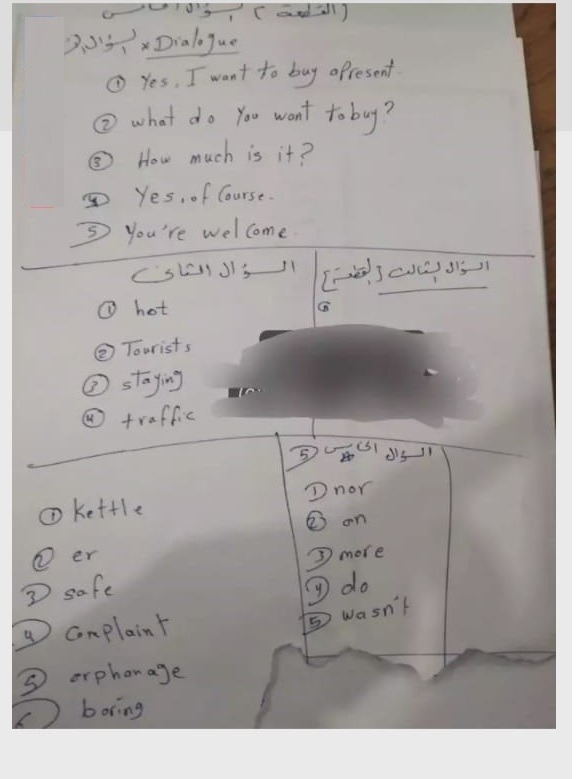 (القطعة)
x Dialogue
① Yes, I want to buy a present.
② what do you want to buy?
③ How much is it?
④ Yes, of Course.
5 You're welcome.
السؤال الثانى
① hot
② Tourists
③ staying
④ traffic
السؤال الثالث [القطعة]
① kettle
② er
3 safe
4 Complaint
5 orphanage
6 boring
5 السؤال الخامس
1 nor
2 on
3 more
4 do
5 wasn't